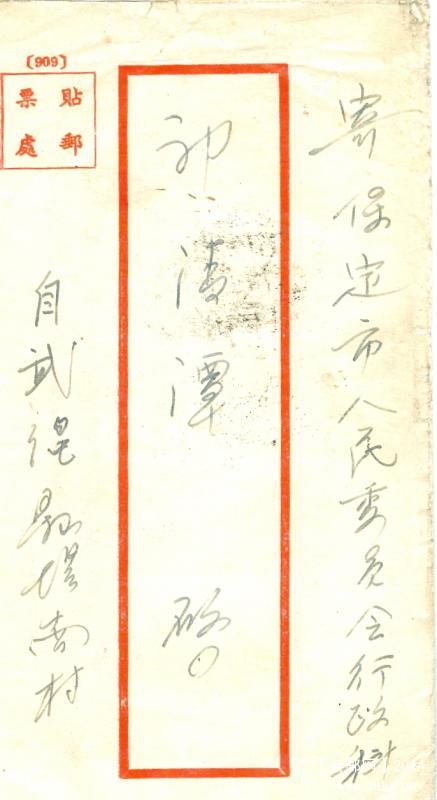 寄保定市人民委员会行政科
潭 啟
〔909〕
貼郵
票處
自武县塔南村